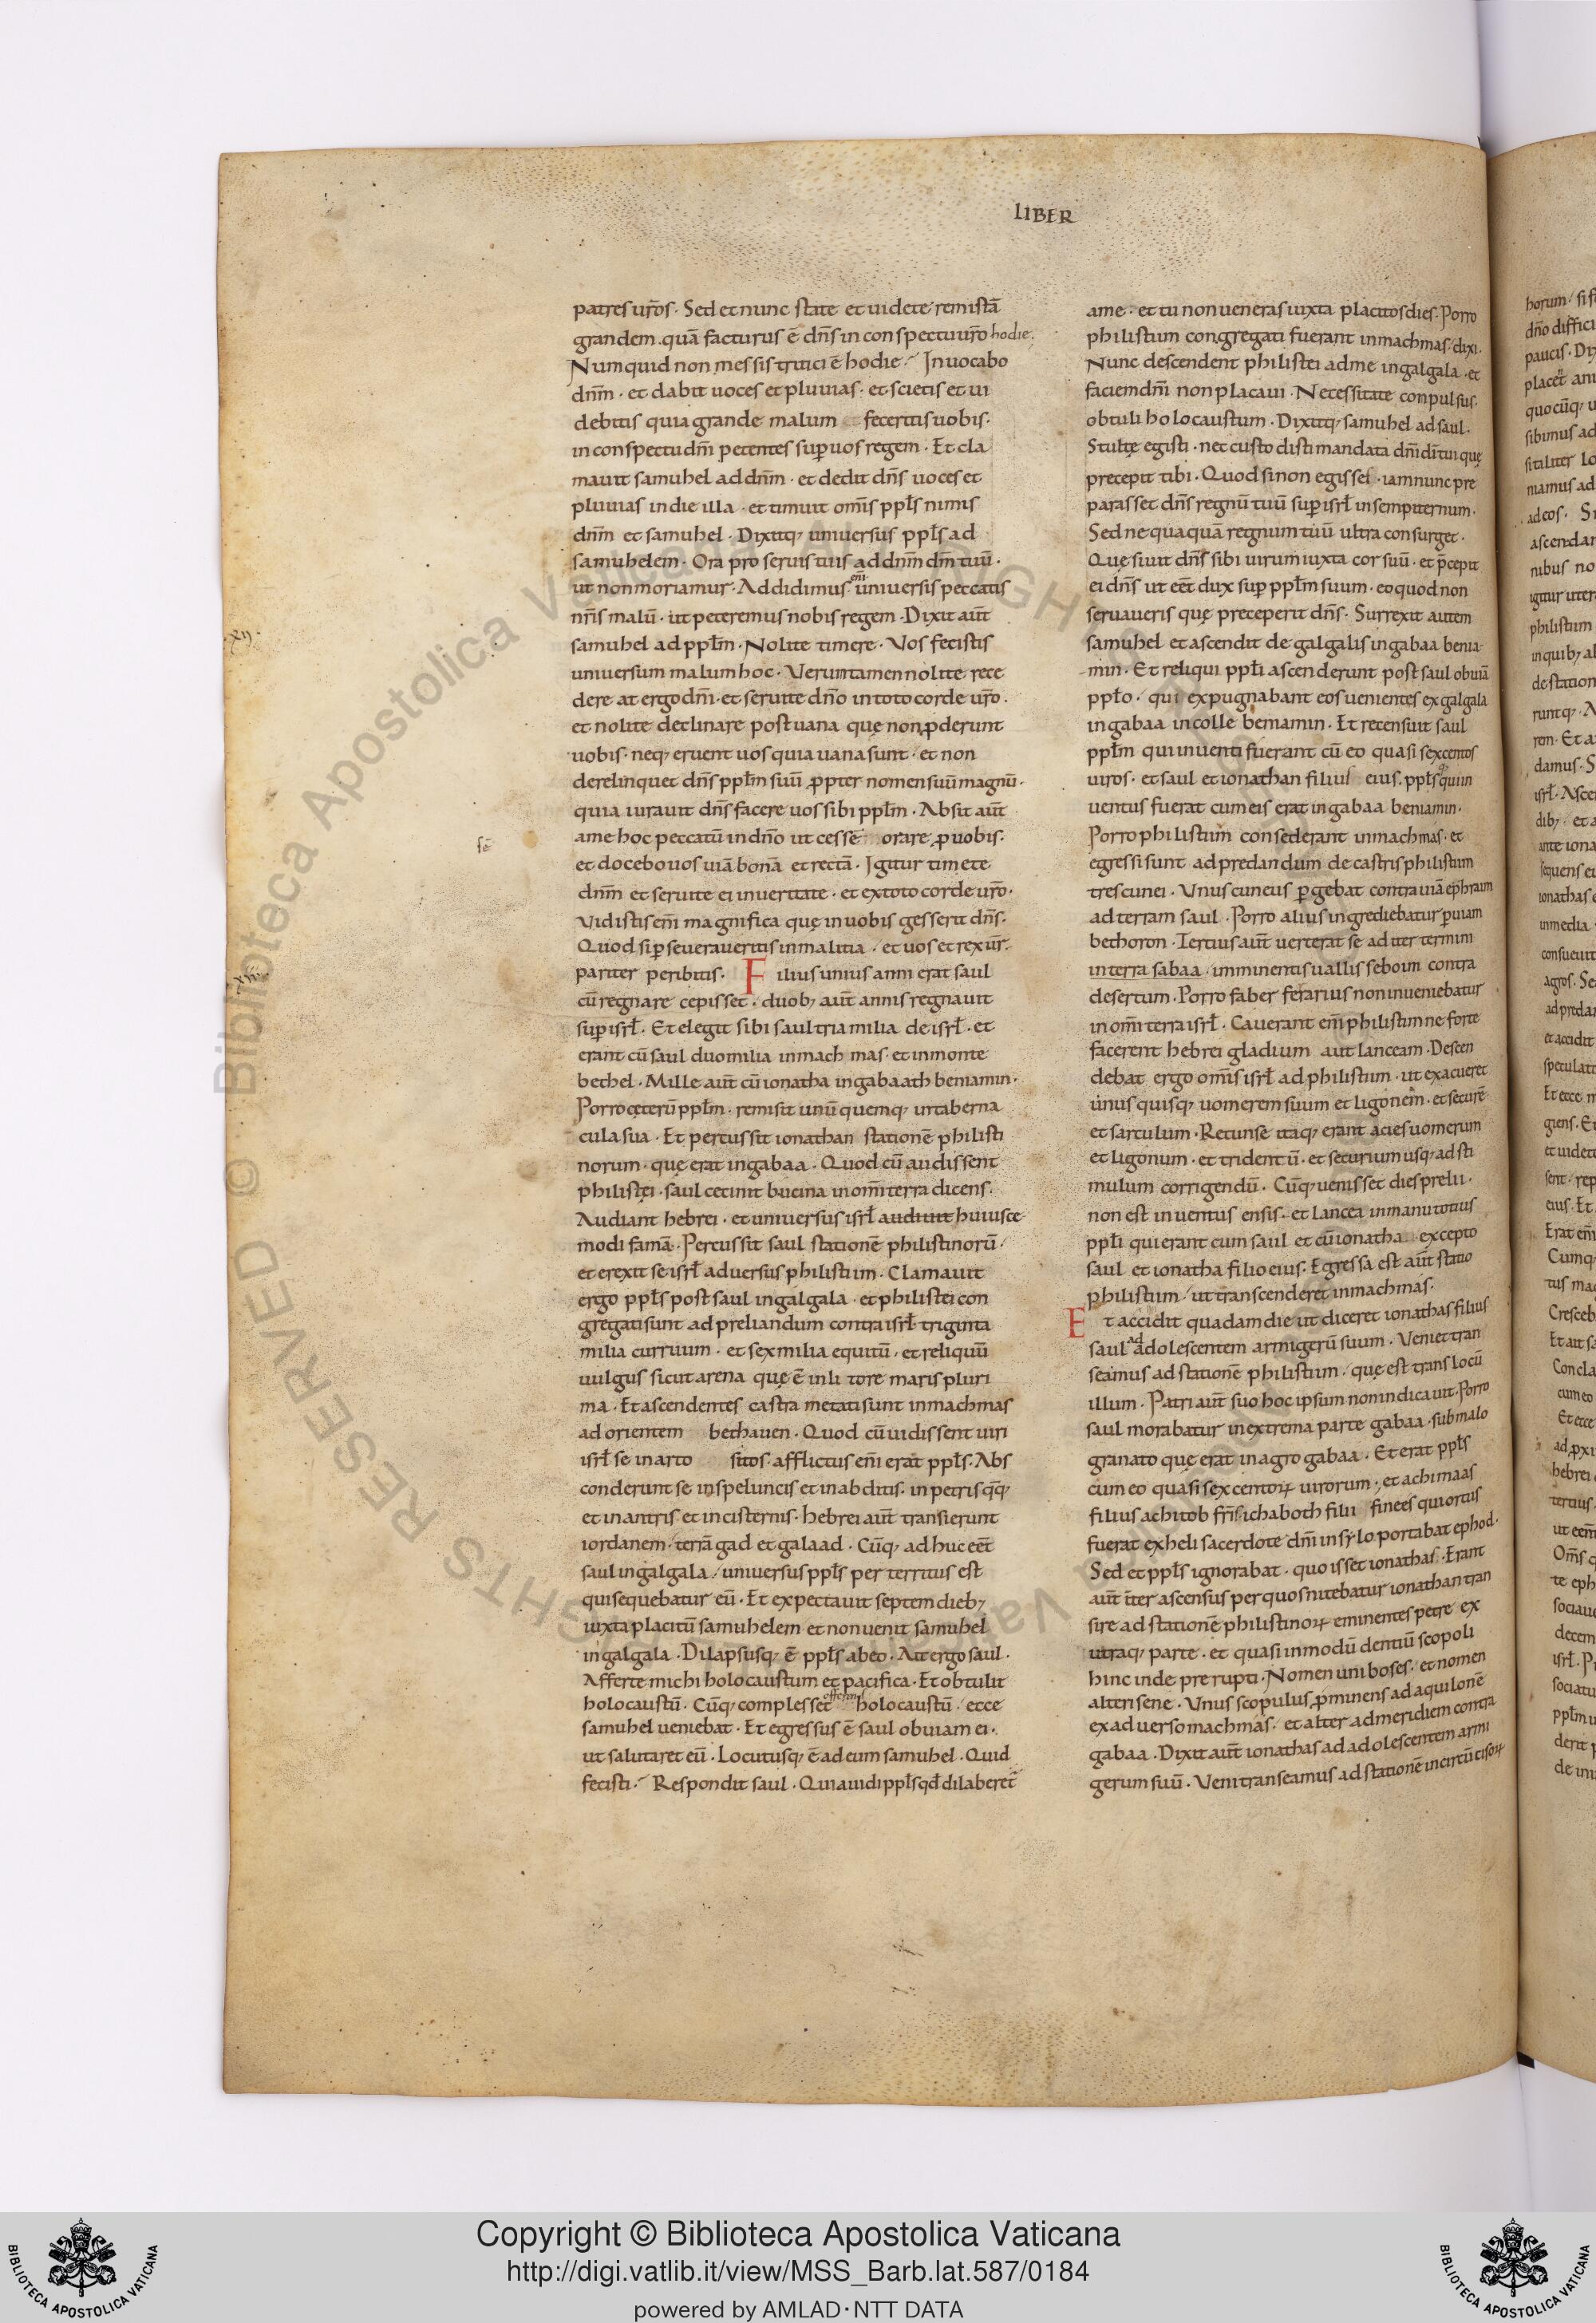 LIBER
patres ur̄os · Sed et nunc state et uidete rem istā
grandem quā facturus ē dn̄s in conspectu ur̄o hodie ;
Numquid non messis tritici ē hodie · Inuocabo
dn̄m · et dabit uoces et pluuias · et scietis et ui
debitis quia grande malum feceritis uobis ·
in conspectu dn̄i petentes sup uos regem · Et cla
mauit samuhel ad dn̄m · et dedit dn̄s uoces et
pluuias in die illa · et timuit om̄is ppl̄s nimis
dn̄m et samuhel · Dixitq; uniuersus ppl̄s ad
samuhelem · Ora pro seruis tuis ad dn̄m dm̄ tuū ·
ut non moriamur · Addidimus eni uniuersis peccatis
nr̄is malū · ut peteremus nobis regem · Dixit aut̄
samuhel ad ppl̄m · Nolite timere · Vos fecistis
uniuersum malum hoc · Veruntamen nolite rece
dere at ergo dn̄i · et seruite dn̄o in toto corde ur̄o ·
et nolite declinare post uana quę non ꝓderunt
uobis · neq; eruent uos quia uana sunt · et non
derelinquet dn̄s ppl̄m suū ꝓpter nomen suū magnū ·
quia iurauit dn̄s facere uos sibi ppl̄m · Absit aut̄
a me hoc peccatū in dn̄o ut cessē orare ꝓ uobis ·
et docebo uos uiā bonā et rectā · Igitur timete
dn̄m et seruite ei in ueritate · et ex toto corde ur̄o ·
Vidistis en̄i magnifica quę in uobis gesserit dn̄s ·
Quod si ꝑseueraueritis in malitia · et uos et rex ur̄ ·
pariter peribitis · Filius unius anni erat saul
cū regnare cepisset · duob; aut̄ annis regnauit
sup isrł · Et elegit sibi saul tria milia de isrł · et
erant cū saul duo milia in mach mas · et in monte
bethel · Mille aut̄ cū ionatha in gabaath beniamin ·
Porro ceterū ppl̄m · remisit unū quemq; in taberna
cula sua · Et percussit ionathan stationē philisti
norum · quę erat in gabaa · Quod cū audissent
philistei · saul cecinit bucina in om̄i terra dicens ·
Audiant hebrei · et uniuersus isrł audiuit huiusce
modi famā · Percussit saul stationē philistinorū ·
et erexit se isrł aduersus philistiim · Clamauit
ergo ppl̄s post saul in galgala · et philistei con
gregati sunt ad preliandum contra isrł triginta
milia curruum · et sex milia equitū · et reliquū
uulgus sicut arena quę ē in litore maris pluri
ma · Et ascendentes castra metati sunt in machmas
ad orientem bethauen · Quod cū uidissent uiri
isrł se in arto sitos · afflictus en̄i erat ppl̄s · Abs
conderunt se in speluncis et in abditis · in petris q̄q;
et in antris et in cisternis · hebrei aut̄ transierunt
iordanem · terrā gad et galaad · Cūq; adhuc eēt
saul in galgala · uniuersus ppl̄s per territus est
qui sequebatur eū · Et expectauit septem dieb;
iuxta placitū samuhelem et non uenit samuhel
in galgala · Dilapsusq; ē ppl̄s ab eo · Ait ergo saul ·
Afferte michi holocaustum et pacifica · Et obtulit
holocaustū · Cūq; complesset offerens holocaustū · ecce
samuhel ueniebat · Et egressus ē saul obuiam ei ·
ut salutaret eū · Locutusq; ē ad eum samuhel · Quid
fecisti · Respondit saul · Quia uidi ppl̄s qđ dilaberet̄
xij
sē
xiij
a me · et tu non ueneras iuxta placitos dies · Porro
philistiim congregati fuerant in machmas · dixi ·
Nunc descendent philistei ad me in galgala · et
faciem dn̄i non placaui · Necessitate conpulsus ·
obtuli holocaustum · Dixitq; samuhel ad saul ·
Stultę egisti · nec custodisti mandata dn̄i dī tui quę
precepit tibi · Quod si non egisses · iam nunc pre
parasset dn̄s regnū tuū sup isrł in sempiternum ·
Sed nequaquā regnum tuū ultra consurget ·
Quęsiuit dn̄s sibi uirum iuxta cor suū · et p̄cepit
ei dn̄s ut eēt dux sup ppl̄m suum · eo quod non
seruaueris quę preceperit dn̄s · Surrexit autem
samuhel et ascendit de galgalis in gabaa benia
min · Et reliqui ppl̄i ascenderunt post saul obuiā
ppl̄o · qui expugnabant eos uenientes ex galgala
in gabaa in colle beniamin · Et recensuit saul
ppl̄m qui inuenti fuerant cū eo quasi sexcentos
uiros · et saul et ionathan filius eius · ppl̄sq; qui in
uentus fuerat cum eis erat in gabaa beniamin ·
Porro philistiim consederant in machmas · et
egressi sunt ad predandum de castris philistiim
tres cunei · Vnus cuneus ꝑgebat contra uiā ephraim
ad terram saul · Porro alius ingrediebatur ꝑ uiam
bethoron · Tertius aut̄ uerterat se ad iter termini
in terra sabaa · imminentis uallis seboim contra
desertum · Porro faber ferarius non inueniebatur
in om̄i terra isrł · Cauerant en̄i philistiim ne forte
facerent hebrei gladium aut lanceam · Descen
debat ergo om̄is isrł ad philistiim · ut exacueret
unus quisq; uomerem suum et ligonem · et securē
et sarculum · Retunse itaq; erant acies uomerum
et ligonum · et tridentū · et securium usq; ad sti
mulum corrigendū · Cūq; uenisset dies prelii ·
non est inuentus ensis · et lancea in manu totius
ppl̄i qui erant cum saul et cū ionatha excepto
saul et ionatha filio eius · Egressa est aut̄ statio
philistiim · ut transcenderet in machmas ·
Et accidit quadam die ut diceret ionathas filius
saul ad adolescentem armigerū suum · Veni et tran
seamus ad stationē philistiim · quę est trans locū
illum · Patri aut̄ suo hoc ipsum non indicauit · Porro
saul morabatur in extrema parte gabaa · sub malo
granato quę erat in agro gabaa · Et erat ppl̄s
cum eo quasi sexcentoꝝ uirorum · et achimaas
filius achitob fr̄is ichaboth filii finees qui ortus
fuerat ex heli sacerdote dn̄i in srlo portabat ephod ·
Sed et ppl̄s ignorabat · quo isset ionathas · Erant
aut̄ iter ascensus per quos nitebatur ionathan tran
sire ad stationē philistinoꝝ eminentes petre ex
utraq; parte · et quasi in modū dentiū scopoli
hinc inde prerupti · Nomen uni boses · et nomen
alteri sene · Vnus scopulus ꝓminens ad aquilonē
ex aduerso machmas · et alter ad meridiem contra
gabaa · Dixit aut̄ ionathas ad adolescentem armi
gerum suū · Veni transeamus ad stationē incircūcisoꝝ
Copyright © Biblioteca Apostolica Vaticana
http://digi.vatlib.it/view/MSS_Barb.lat.587/0184
powered by AMLAD·NTT DATA
BIBLIOTECA APOSTOLICA VATICANA
BIBLIOTECA APOSTOLICA VATICANA